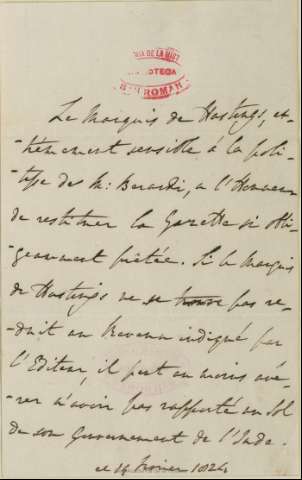 BIBLIOTECA
Le Marquis de Hastings, ex-
-trêmement sensible à la poli-
-tesse des M: Berardi, a l'Honneur
de restituer la Gazette si obli-
-geamment prêtée. Si le Marquis
de Hastings ne se trouve pas re-
-duit au Revenu indiqué par
l'Editeur, il peut au moins avé-
-rer n'avoir pas rapporté un Sol
de son Gouvernement de l'Inde.
ce 14 Fevrier 1824